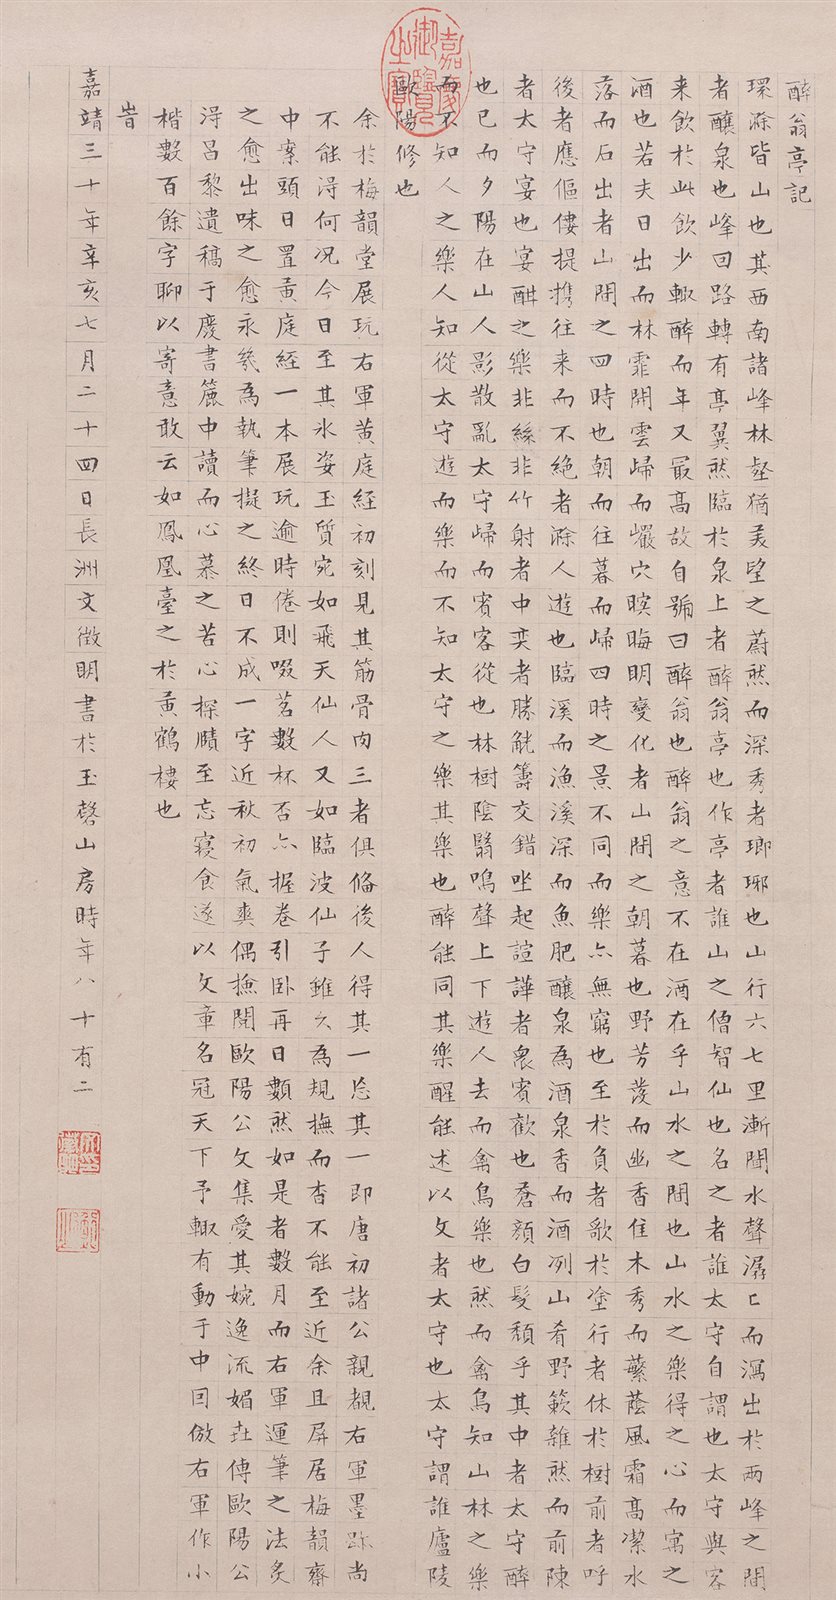 嘉慶御覽之寶
醉翁亭記
環滁皆山也其西南諸峰林壑猶美望之蔚然而深秀者瑯琊也山行六七里漸聞水聲潺々而瀉出於兩峰之間
者釀泉也峰回路轉有亭翼然臨於泉上者醉翁亭也作亭者誰山之僧智仙也名之者誰太守自謂也太守與客
来飲於此飲少輒醉而年又最高故自號曰醉翁也醉翁之意不在酒在乎山水之間也山水之樂得之心而寓之
酒也若夫日出而林霏開雲歸而巖穴暝晦明變化者山間之朝暮也野芳發而幽香佳木秀而蘩蔭風霜高潔水
落而石出者山間之四時也朝而往暮而歸四時之景不同而樂亦無窮也至於負者歌於塗行者休於樹前者呼
後者應傴僂提携往来而不絶者滁人遊也臨溪而漁溪深而魚肥釀泉為酒泉香而酒冽山肴野蔌雜然而前陳
者太守宴也宴酣之樂非絲非竹射者中奕者勝觥籌交錯坐起諠譁者衆賓歡也蒼顔白髮頽乎其中者太守醉
也已而夕陽在山人影散亂太守歸而賓客從也林樹陰翳鳴聲上下遊人去而禽鳥樂也然而禽鳥知山林之樂
而不知人之樂人知從太守遊而樂而不知太守之樂其樂也醉能同其樂醒能述以文者太守也太守謂誰廬陵
歐陽修也
余於梅韻堂展玩右軍黄庭經初刻見其筋骨肉三者俱偹後人得其一忘其一即唐初諸公親覩右軍墨跡尚
不能淂何况今日至其氷姿玉質宛如飛天仙人又如臨波仙子雖久為規撫而杳不能至近余且屏居梅韻齋
中案頭日置黄庭經一本展玩逾時倦則啜茗數杯否亦握卷引卧再日數然如是者數月而右軍運筆之法炙
之愈出味之愈永幾為執筆擬之終日不成一字近秋初氣爽偶撿閲歐陽公文集愛其婉逸流媚且傳歐陽公
淂昌黎遺稿于廢書簏中讀而心慕之苦心探賾至忘寝食遂以文章名冠天下予輙有動于中囙倣右軍作小
楷數百餘字聊以寄意敢云如鳳凰臺之於黄鶴樓也
旹
嘉靖三十年辛亥七月二十四日長洲文徵明書於玉磬山房時年八十有二